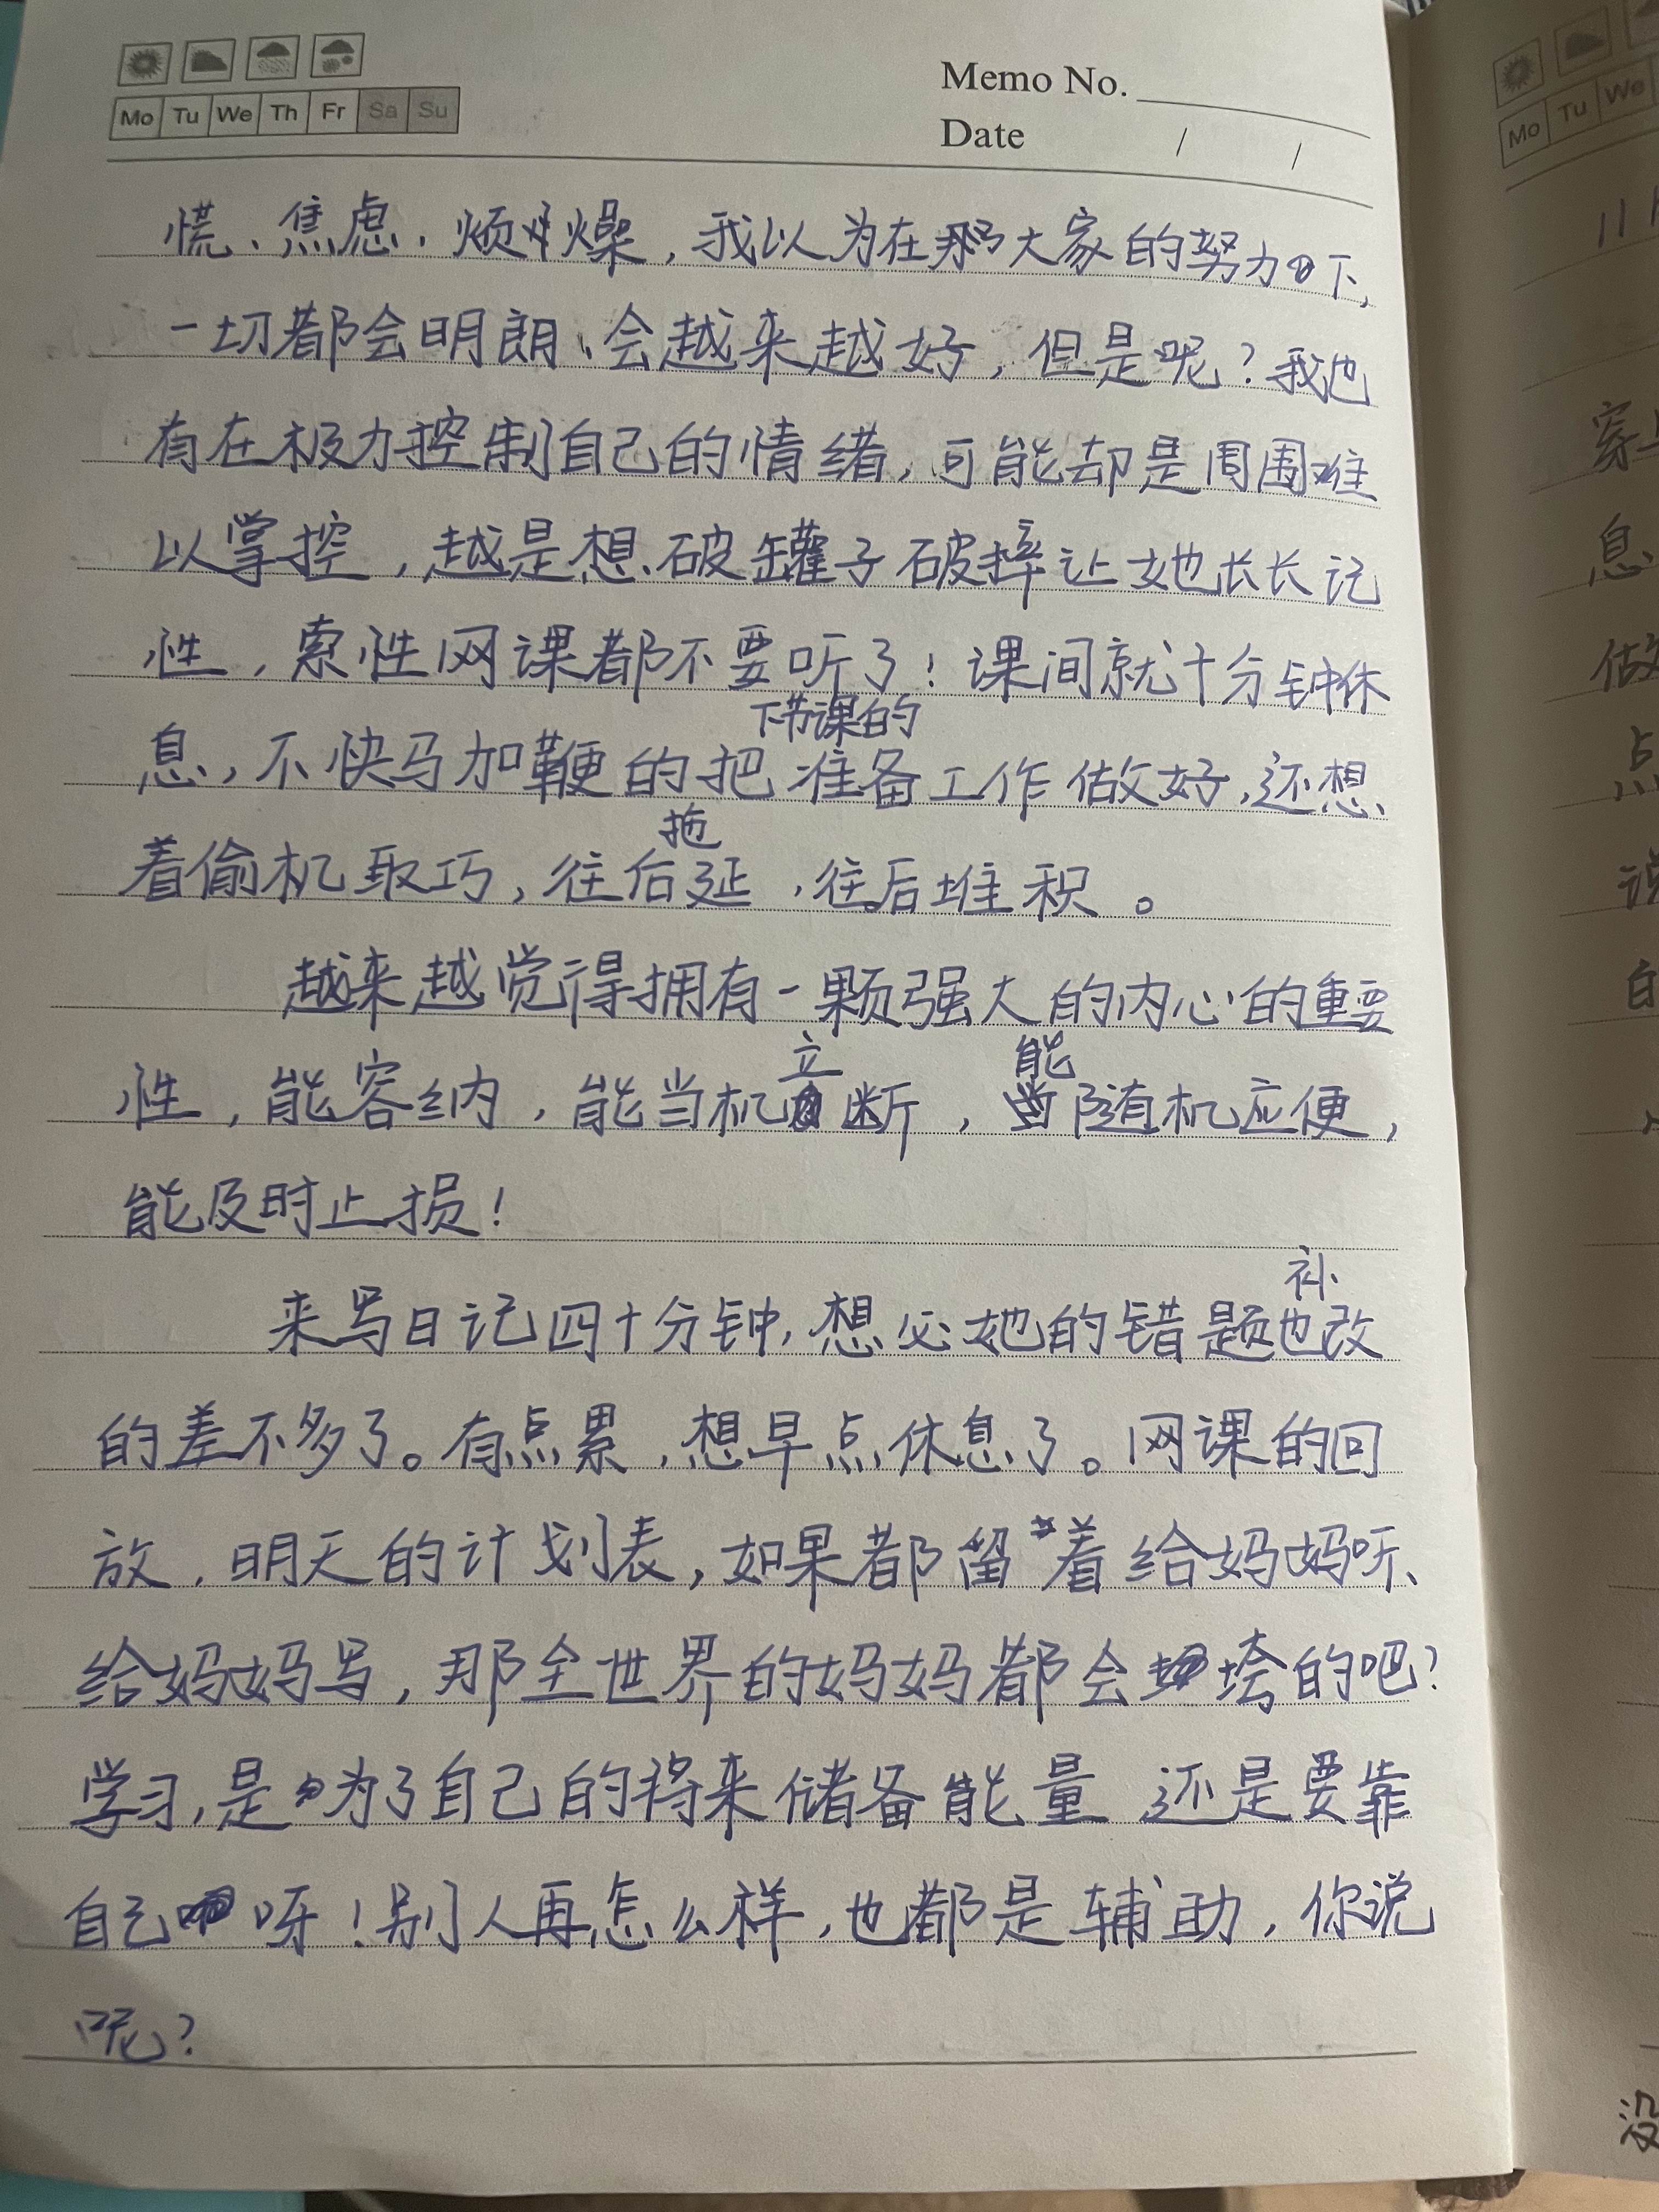 Mo Tu We Th Fr Sa Su
Memo No.
Date / /
慌、焦虑、烦燥，我以为在大家的努力下，
一切都会明朗、会越来越好，但是呢？我也
有在极力控制自己的情绪，可能却是周围难
以掌控，越是想破罐子破摔让她长长记
性，索性网课都不要听了！课间就十分钟休
息，不快马加鞭的把下节课的准备工作做好，还想
着偷机取巧，往后拖延，往后堆积。
越来越觉得拥有一颗强大的内心的重要
性，能容纳，能当机立断，能随机应便，
能及时止损！
来写日记四十分钟，想必她的错题也补改
的差不多了。有点累，想早点休息了。网课的回
放，明天的计划表，如果都留着给妈妈听、
给妈妈写，那全世界的妈妈都会垮的吧？
学习，是为了自己的将来储备能量 还是要靠
自己呀！别人再怎么样，也都是辅助，你说
呢？
Mo Tu We
穿
息
做
点
说
自
没